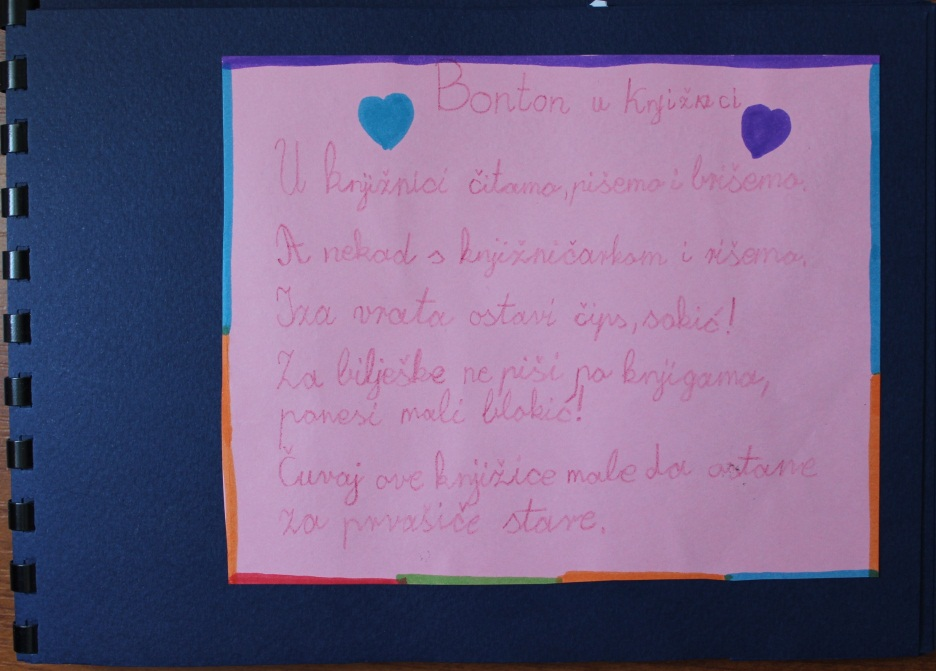 Bonton u knjižnici
U knjižnici čitamo, pišemo i brišemo.
A nekad s knjižničarkom i rišemo.
Iza vrata ostavi čips, sokić!
Za bilješke ne piši po knjigama,
ponesi mali blokić!
Čuvaj ove knjižice male da ostane
za prvašiće stare.